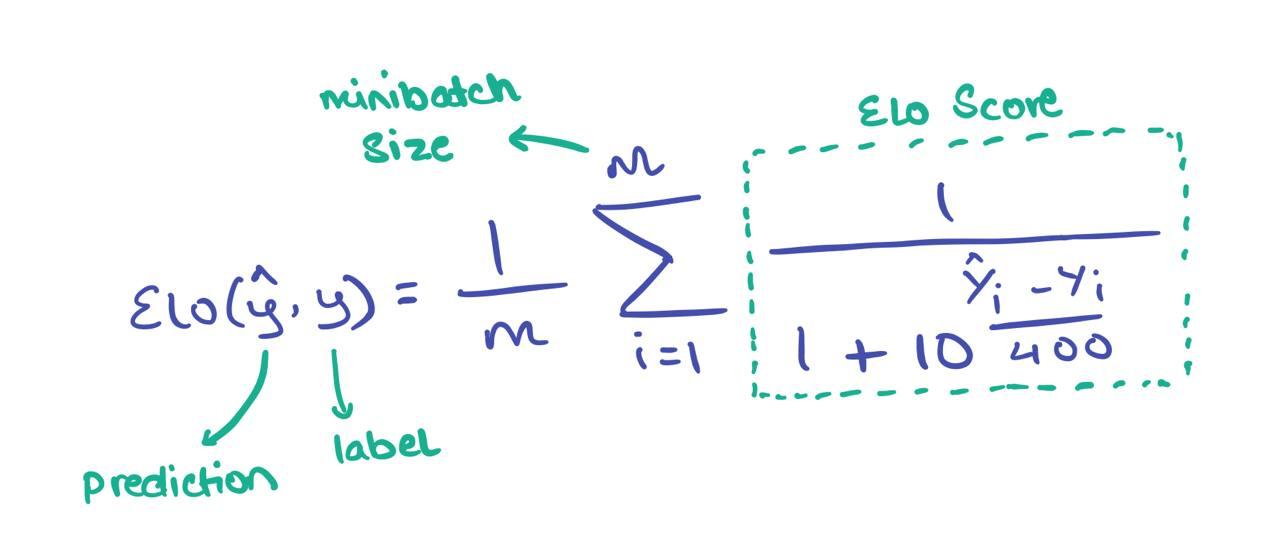 minibatch
size
Elo Score
Elo(ŷ, y) = 1/m m Σ i=1 1 / (1 + 10^((ŷi - yi)/400))
prediction
label